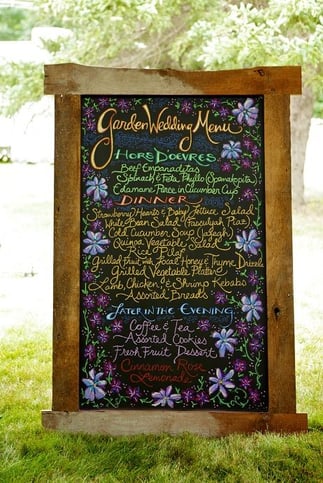 Garden Wedding Menu
Hors Doevres
Beef Empanaditas
Spinach & Feta Phyllo (Spanakopita)
Edamame Puree in Cucumber Cup
Dinner
Strawberry Hearts & Baby Lettuce Salad
White Bean Salad (Fassulyah Piaz)
Cold Cucumber Soup (Jajeah)
Quinoa Vegetable Salad
Rice Pilaf
Grilled Fruit with Local Honey & Thyme Drizzle
Grilled Vegetable Platter
Lamb, Chicken & Shrimp Kebabs
Assorted Breads
Later in the Evening
Coffee & Tea
Assorted Cookies
Fresh Fruit Dessert
Cinnamon Rose
Lemonade